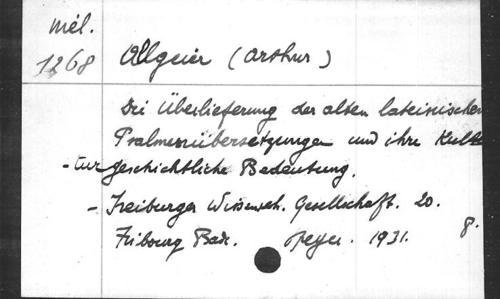 mél.
1268 Allgeier (Arthur)
Die Überlieferung der alten lateinischen
Psalmenübersetzungen und ihre Kul
-turgeschichtliche Bedeutung.
- Freiburger Wissensch. Gesellschaft. 20.
Fribourg Bade. 1931. 8.